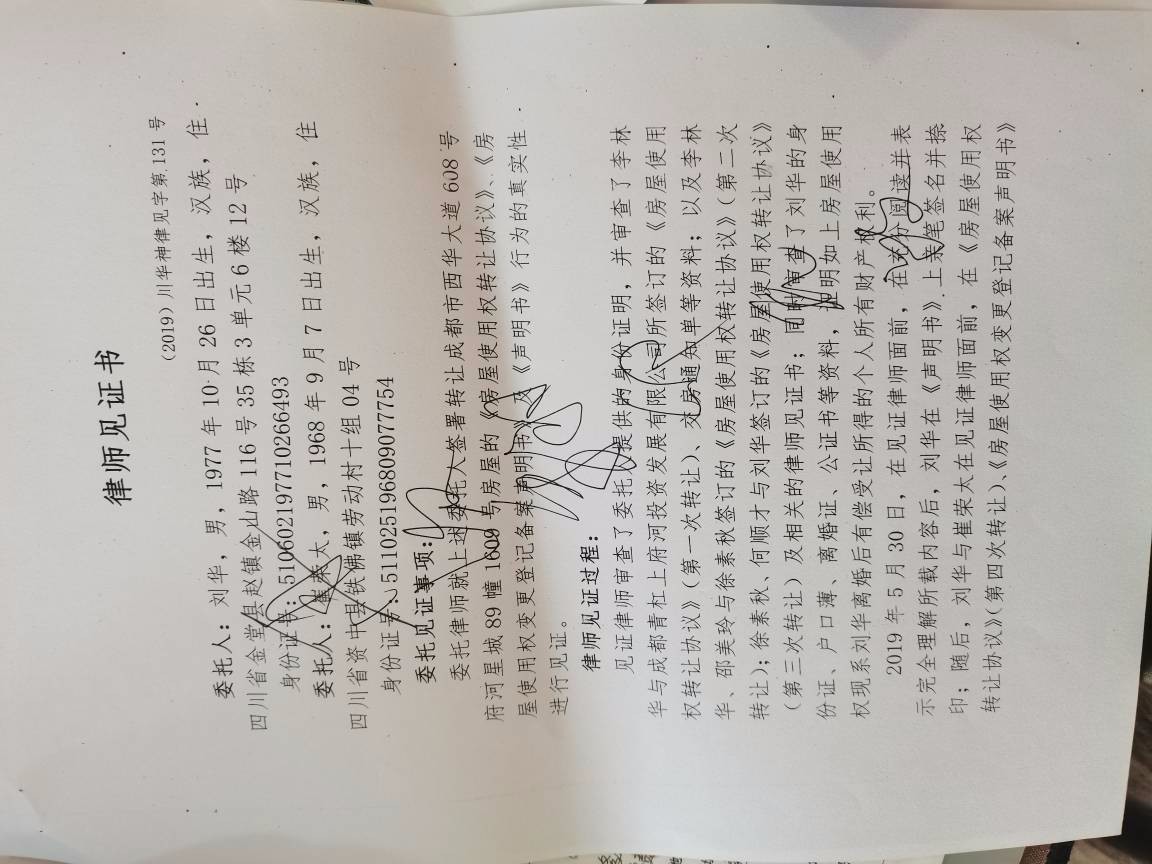 律师见证书
（2019）川华神律见字第 131 号
委托人：刘华，男，1977 年 10 月 26 日出生，汉族，住
四川省金堂县赵镇金山路 116 号 35 栋 3 单元 6 楼 12 号
身份证号：510602197710266493
委托人：崔荣太，男，1968 年 9 月 7 日出生，汉族，住
四川省资中县铁佛镇劳动村十组 04 号
身份证号：511025196809077754
委托见证事项：
委托律师就上述委托人签署转让成都市西华大道 608 号
府河星城 89 幢 1609 号房屋的《房屋使用权转让协议》、《房
屋使用权变更登记备案声明书》及《声明书》行为的真实性
进行见证。
律师见证过程：
见证律师审查了委托人提供的身份证明，并审查了李林
华与成都青杠上府河投资发展有限公司所签订的《房屋使用
权转让协议》（第一次转让）、交房通知单等资料；以及李林
华、邵美玲与徐素秋签订的《房屋使用权转让协议》（第二次
转让）；徐素秋、何顺才与刘华签订的《房屋使用权转让协议》
（第三次转让）及相关的律师见证书；同时审查了刘华的身
份证、户口薄、离婚证、公证书等资料，证明如上房屋使用
权现系刘华离婚后有偿受让所得的个人所有财产权利。
2019 年 5 月 30 日，在见证律师面前，在充分阅读并表
示完全理解所载内容后，刘华在《声明书》上亲笔签名并捺
印；随后，刘华与崔荣太在见证律师面前，在《房屋使用权
转让协议》（第四次转让）、《房屋使用权变更登记备案声明书》